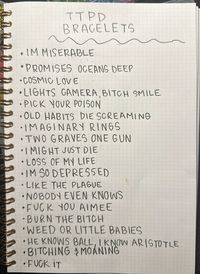 TTPD
BRACELETS
• IM MISERABLE
• PROMISES OCEANS DEEP
• COSMIC LOVE
• LIGHTS CAMERA, BITCH SMILE
• PICK YOUR POISON
• OLD HABITS DIE SCREAMING
• IMAGINARY RINGS
• TWO GRAVES ONE GUN
• I MIGHT JUST DIE
• LOSS OF MY LIFE
• IM SO DEPRESSED
• LIKE THE PLAGUE
• NOBODY EVEN KNOWS
• FUCK YOU AIMEE
• BURN THE BITCH
• WEED OR LITTLE BABIES
• HE KNOWS BALL, I KNOW ARISTOTLE
• BITCHING & MOANING
• FUCK IT